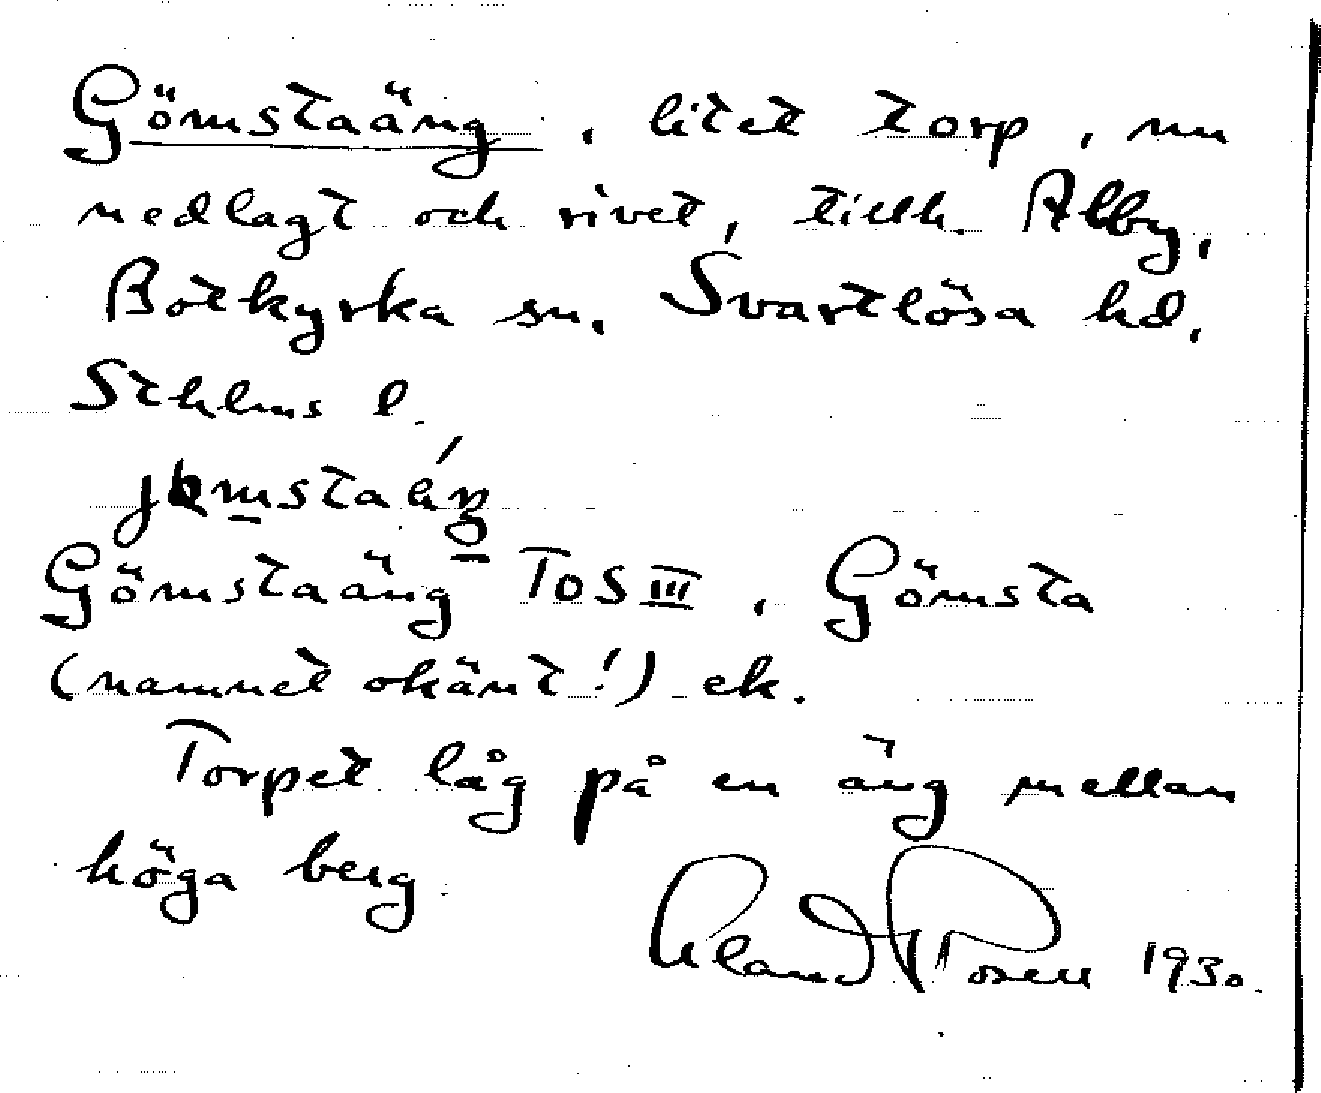 Gömstaäng, litet torp, nu
nedlagt och rivet, tillh. Alby,
Botkyrka sn, Svartlösa hd,
Sthlms l.
Gömstaäng TOS III, Gömsta
(namnet okänt!) ek.
Torpet låg på en äng mellan
höga berg.
Rosell 1930.